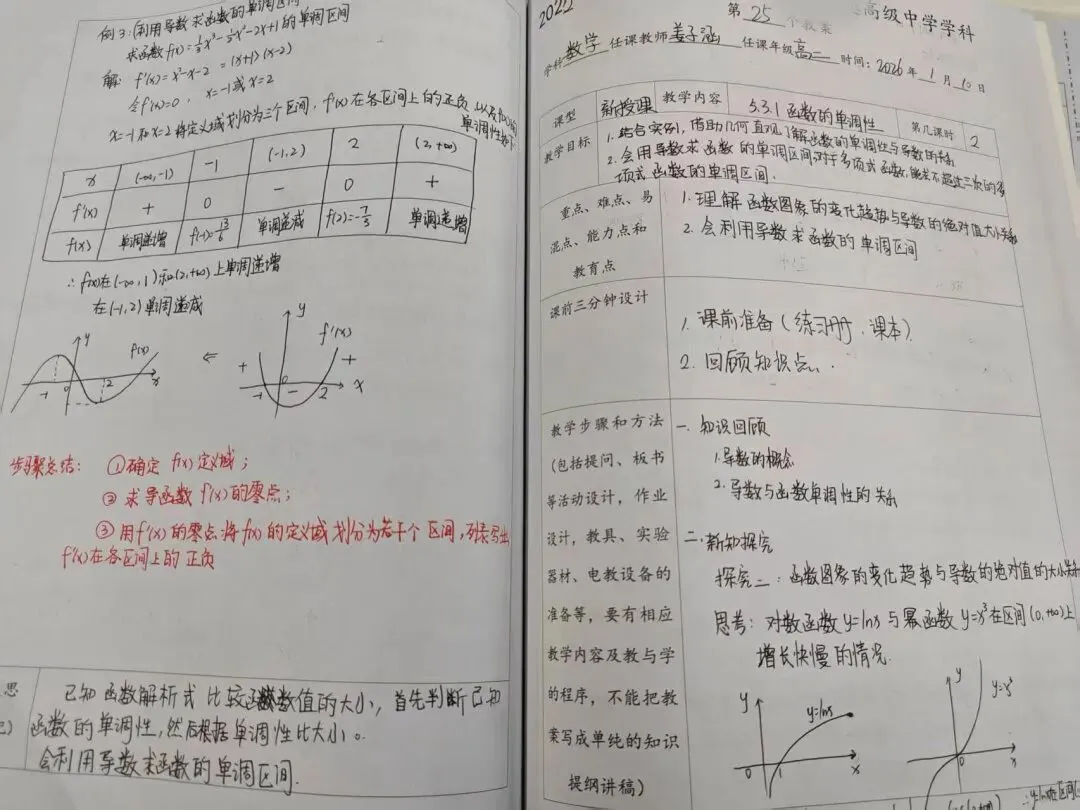 例3:(利用导数求函数的单调区间
求函数f(x)=⅓x³-½x²-2x+1的单调区间
解: f'(x)=x²-x-2 =(x+1)(x-2)
令f'(x)=0, x=-1或x=2
x=-1和x=2将定义域划分为三个区间,f'(x)在各区间上的正负 以及f(x)的
单调性如下
x (-∞,-1) -1 (-1,2) 2 (2,+∞)
f'(x) + 0 - 0 +
f(x) 单调递增 f(-1)=13/6 单调递减 f(2)=-7/3 单调递增
∴f(x)在(-∞,1)和(2,+∞)上单调递增
在(-1,2)单调递减
y f(x) -1 0 2 x
⇐
y f'(x) + -1 0 - 2 + x
步骤总结: ①确定 f(x)定义域;
②求导函数 f'(x)的零点;
③用f'(x)的零点将f(x)的定义域划分为若干个区间,列表写出
f'(x)在各区间上的正负
思
已知函数解析式比较函数值的大小,首先判断已知
函数的单调性,然后根据单调性比大小。
会利用导数求函数的单调区间.
2022
高级中学学科
第 25 个教案
学科 数学 任课教师 姜子涵 任课年级 高二 时间: 2026 年 1 月 10 日
课型 新授课 教学内容 5.3.1 函数的单调性 第几课时 2
教学目标
1.结合实例,借助几何直观了解函数的单调性与导数的关系
2.会用导数求函数的单调区间,对于多项式函数,能求不超过三次的多
项式函数的单调区间.
重点、难点、易
混点、能力点和
教育点
1.理解函数图象的变化趋势与导数的绝对值大小关系
2.会利用导数求函数的单调区间
课前三分钟设计
1.课前准备(练习册、课本)
2.回顾知识点.
教学步骤和方法
(包括提问、板书
等活动设计,作业
设计,教具、实验
器材、电教设备的
准备等,要有相应
教学内容及教与学
的程序,不能把教
案写成单纯的知识
提纲讲稿)
一.知识回顾
1.导数的概念
2.导数与函数单调性的关系
二.新知探究
探究二:函数图象的变化趋势与导数的绝对值的大小关系
思考:对数函数y=lnx与幂函数y=x³在区间(0,+∞)上
增长快慢的情况.
y y=lnx 0 1 x
y y=x³ 0 x